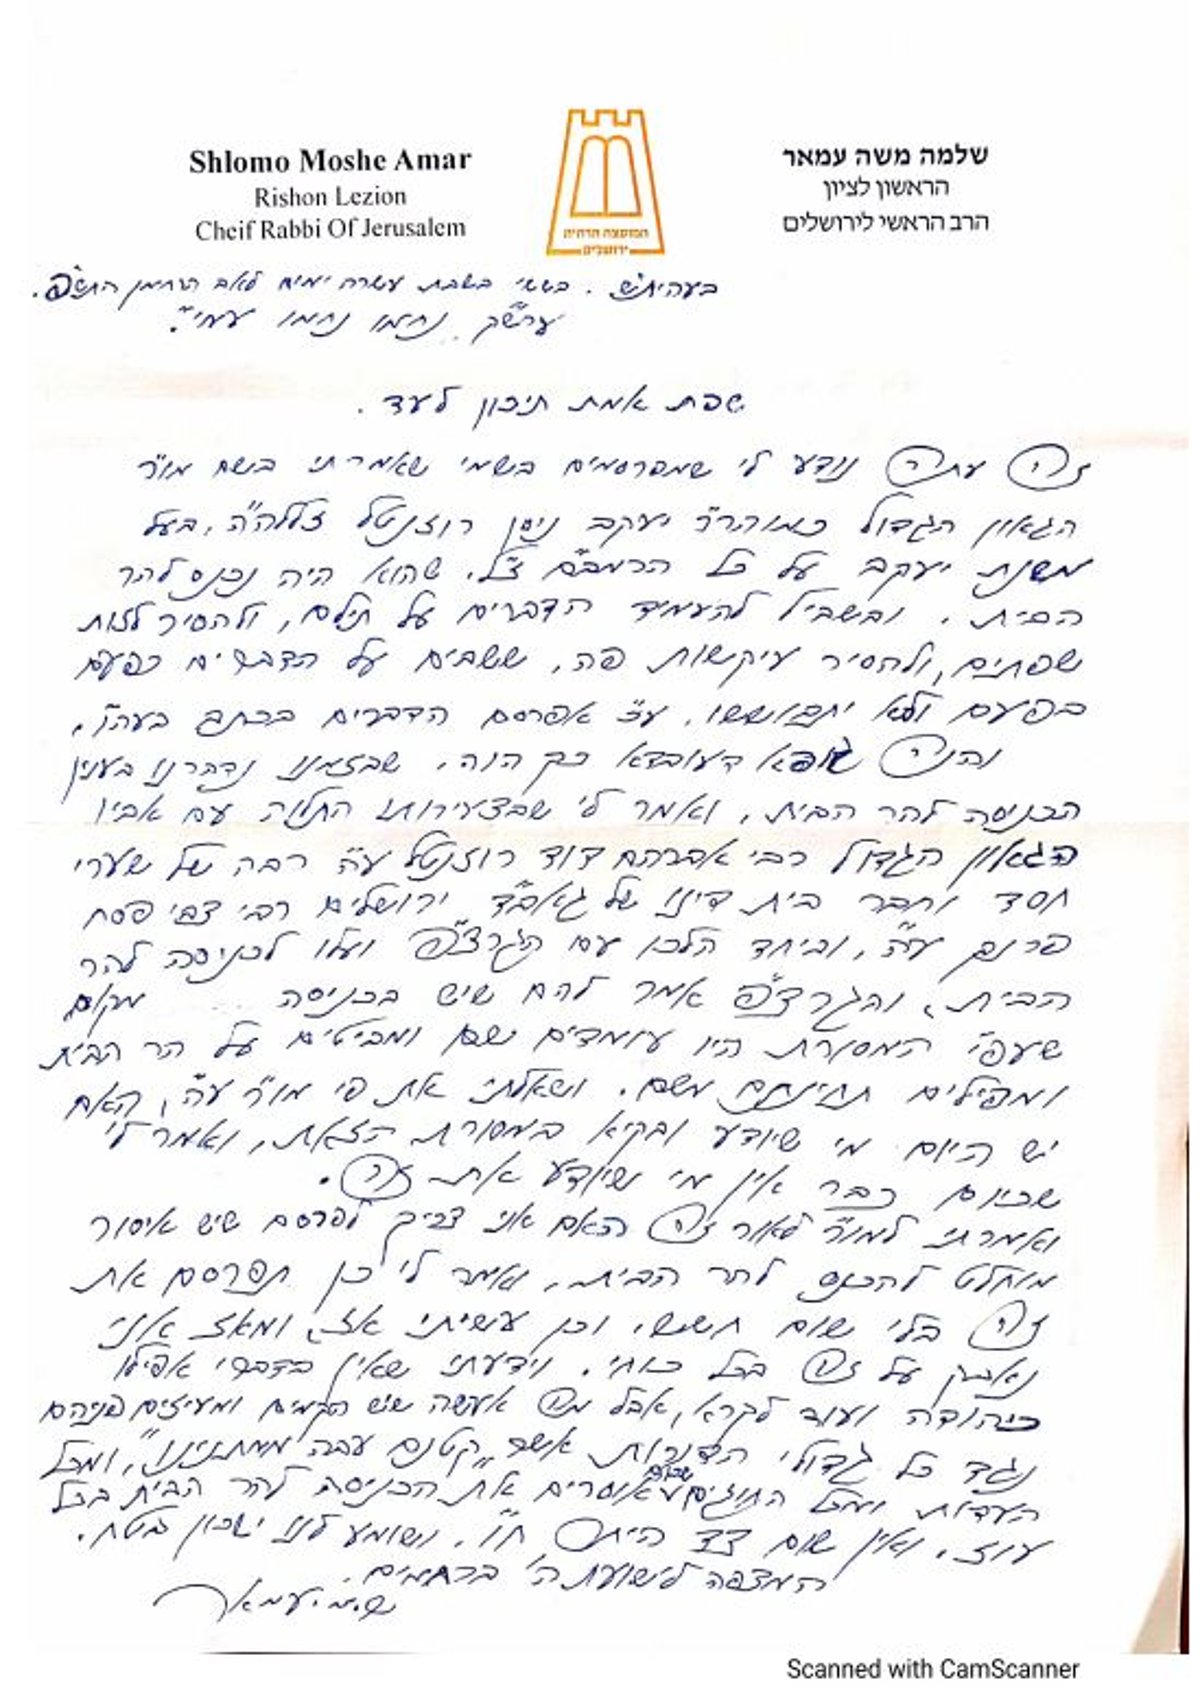 Shlomo Moshe Amar
Rishon Lezion
Cheif Rabbi Of Jerusalem
המועצה הדתית
ירושלים
שלמה משה עמאר
הראשון לציון
הרב הראשי לירושלים
בעהית"ש. בששי בשבת עשרה ימים לאב הרחמן התש"פ.
ערש"ק. נחמו נחמו עמי".
שפת אמת תיכון לעד.
זה עתה נודע לי שמפרסמים בשמי שאמרתי בשם מו"ר
הגאון הגדול כמוהר"ר יעקב ניסן רוזנטל זצללה"ה, בעל
משנת יעקב על כל הרמב"ם ז"ל. שהוא היה נכנס להר
הבית. ובשביל להעמיד הדברים על תילם, ולהסיר לזות
שפתים, ולהסיר עיקשות פה, ששבים על הדברים כפעם
בפעם ולא יתבוששו. ע"כ אפרסם הדברים בכתב בעה"ו.
והנה גופא דעובדא כך הוה. שבזמנו נדברנו בענין
הכניסה להר הבית, ואמר לי שבצעירותו התלוה עם אביו
הגאון הגדול רבי אברהם דוד רוזנטל ע"ה רבה של שערי
חסד וחבר בית דינו של גאב"ד ירושלים רבי צבי פסח
פרנק ע"ה, וביחד הלכו עם הגרצ"פ ועלו לכניסה להר
הבית, והגרצ"פ אמר להם שיש בכניסה מקום
שעפ"י המסורת היו עומדים שם ומביטים על הר הבית
ומפילים תחינתם משם. ושאלתי את פי מו"ר ע"ה, האם
יש היום מי שיודע ובקיא במסורת הזאת, ואמר לי
שכיום כבר אין מי שיודע את זה.
ואמרתי למו"ר לאור זה האם אני צריך לפרסם שיש איסור
מוחלט להכנס להר הבית, ואמר לי כן תפרסם את
זה בלי שום חשש, וכן עשיתי אז, ומאז אני
נאבק על זה בכל כוחי. וידעתי שאין בדברי אפילו
כיהודה ועוד לקרא, אבל מה אעשה שיש הקמים ומעיזים פניהם
נגד כל גדולי הדורות אשר "קטנם עבה ממתנינו", ומכל
העדות ומכל החוגים שכולם אוסרים את הכניסה להר הבית בכל
עוז, ואין שום צד היתר ח"ו. ושומע לנו ישכון בטח.
המצפה לישועת ה' ברחמים.
ש.מ. עמאר
Scanned with CamScanner